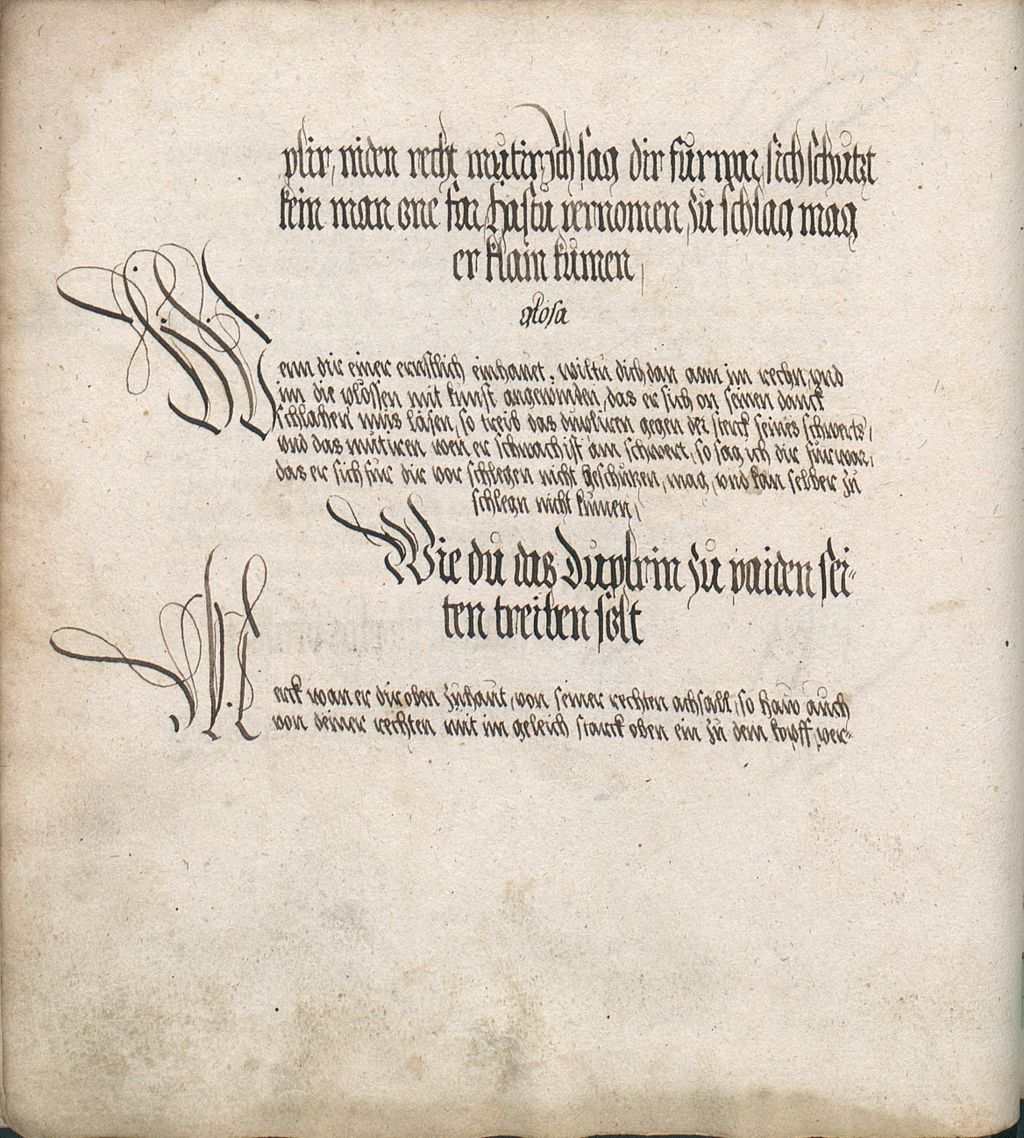 plir, niden recht mutir, ich sag dir fürwar, sich schutzt
kein man one far, hastu vernomen, zu schlag mag
er klain kumen,
glosa
Wenn dir einer ernstlich einhauet, wiltu dich dan ann im rechn, und
im die plossen mit kunst angewinden, das er sich on seinen danck
schlachen mus lasen, so treib das dupliren gegen der sterck seines schwerts,
und das mutiren wen er schwach ist am schwert, so sag ich dir fürwar,
das er sich für dir vor schlegen nicht geschutzen, mag, und kan selber zu
schlegn nicht kumen,
Wie du das Duplirin zu paiden sei-
ten treiben solt
Merck wan er dir oben zuhaut, von seiner rechten achsall, so haw auch
von deiner rechten mit im geleich starck oben ein zu dem kopff, ver-